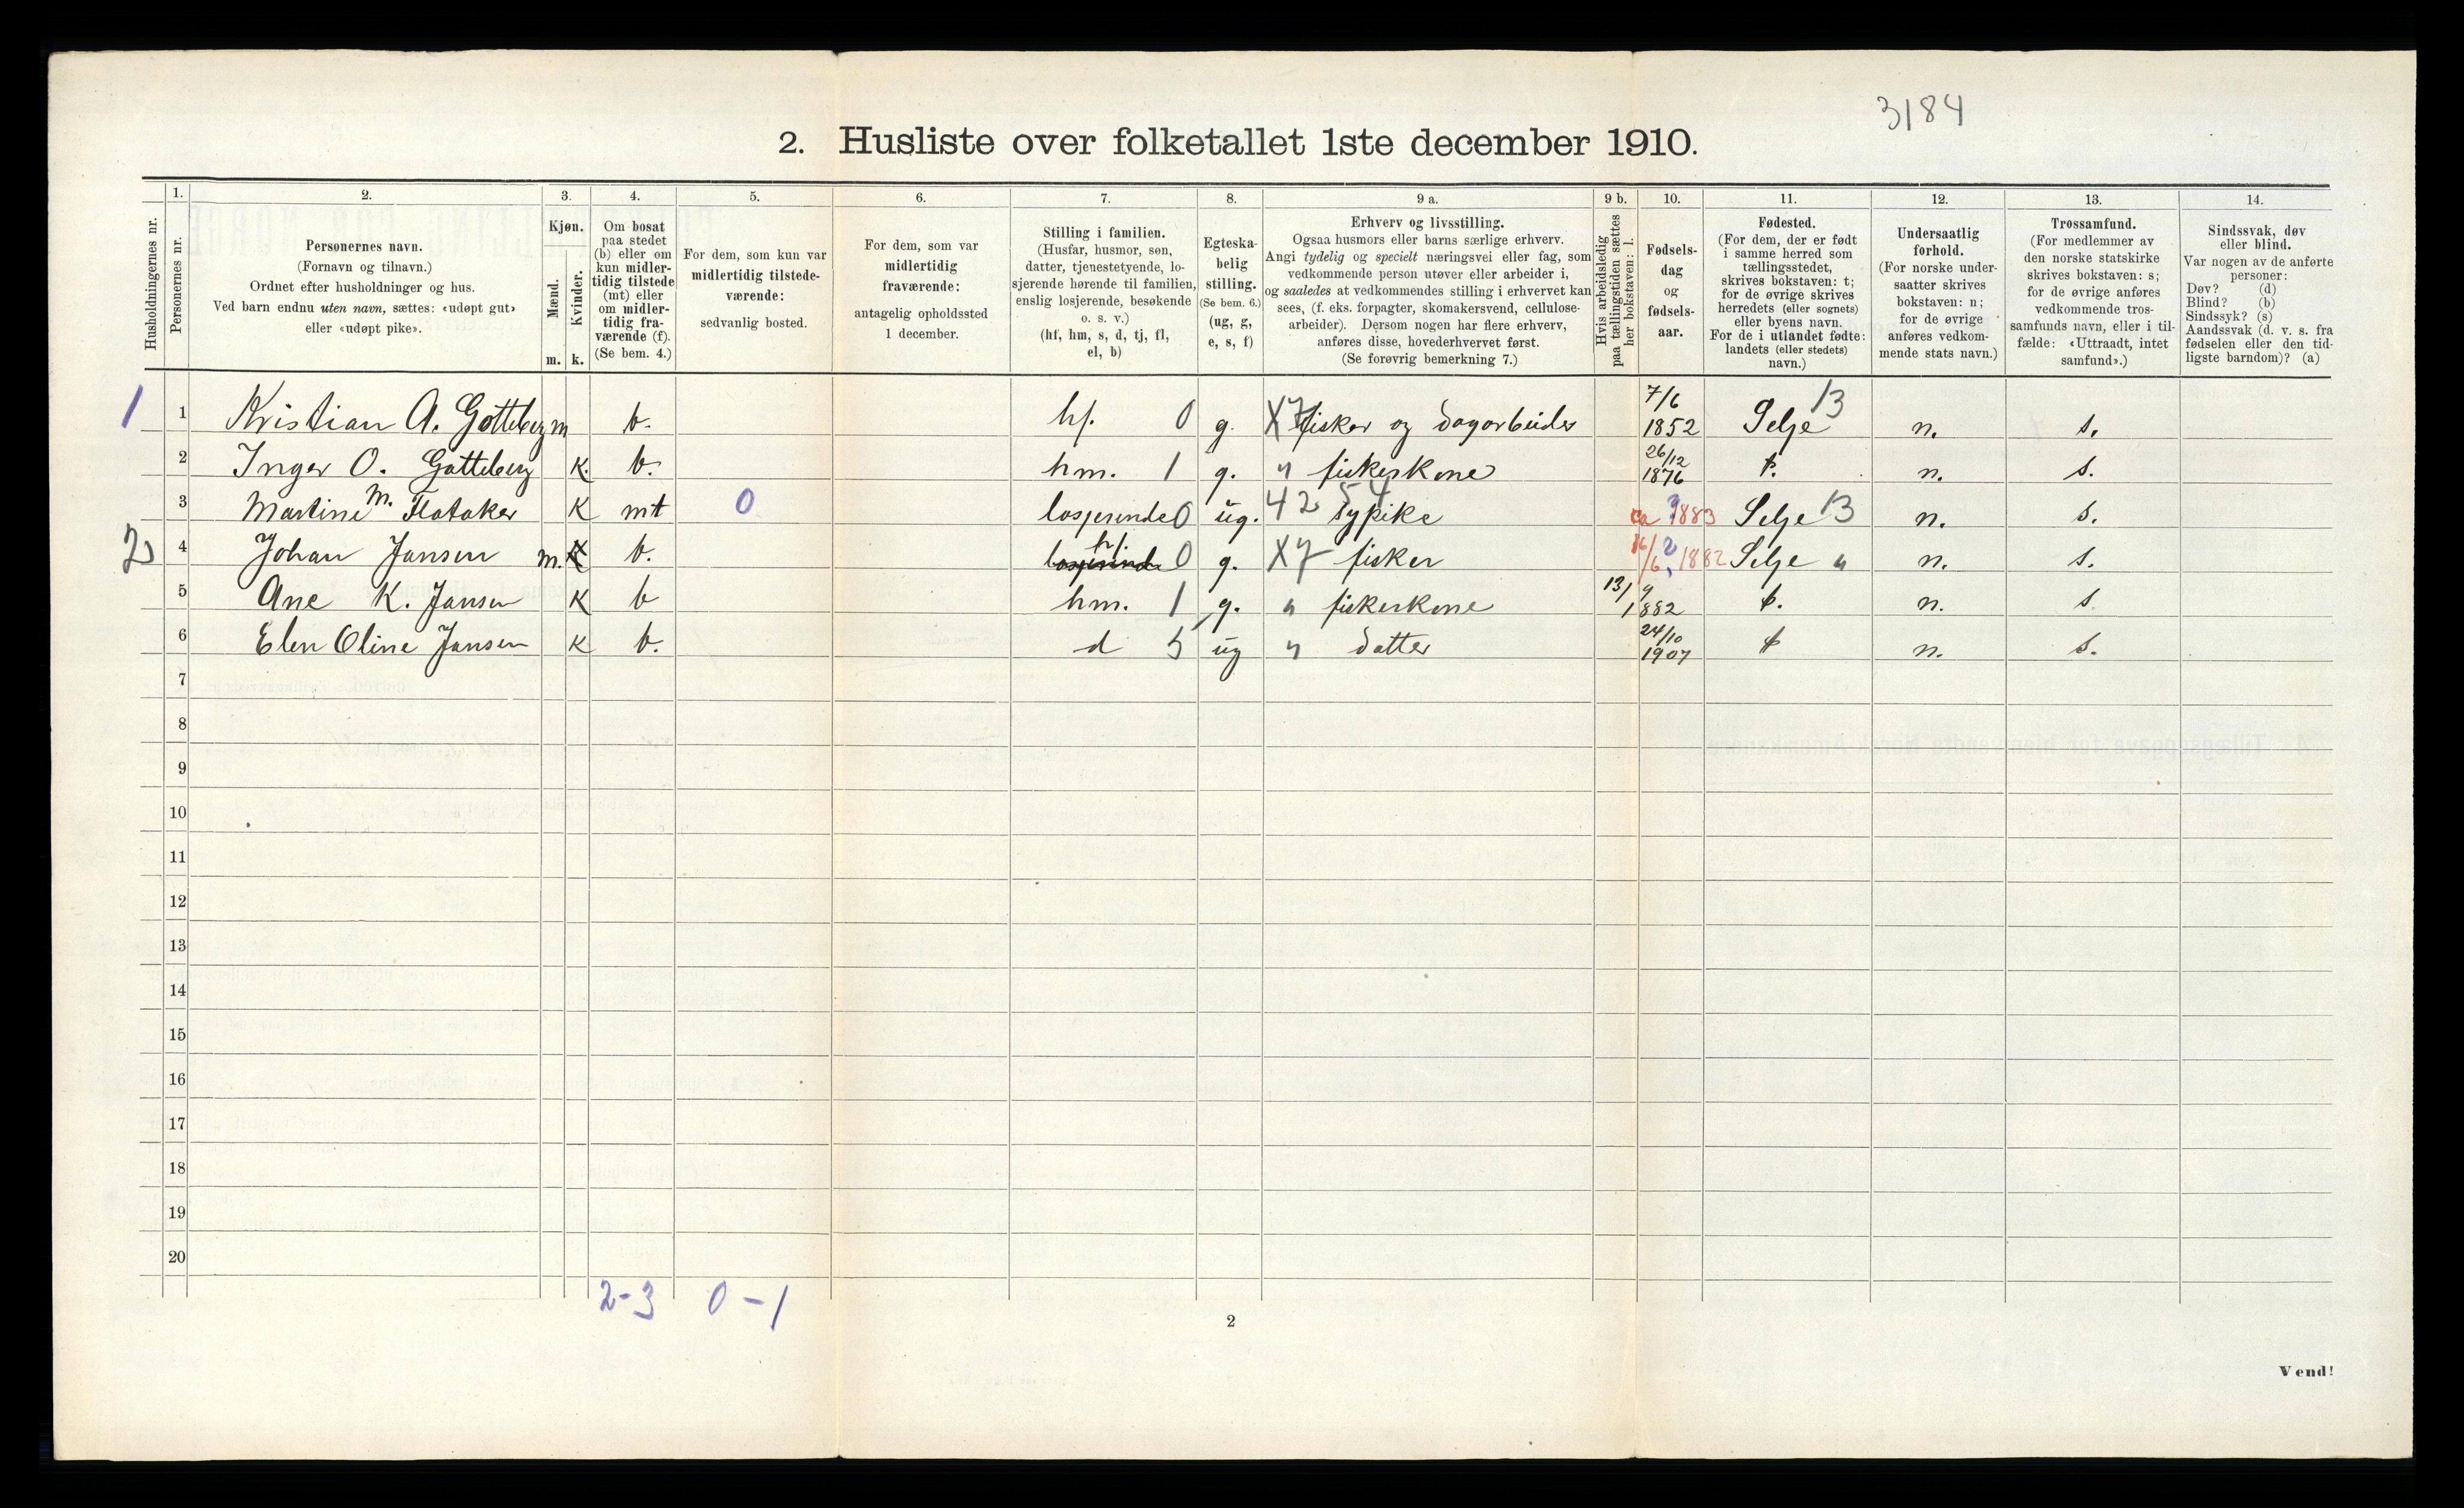 3184
2. Husliste over folketallet 1ste december 1910.
1. 2. 3. 4. 5. 6. 7. 8. 9 a. 9 b. 10. 11. 12. 13. 14.
Husholdningernes nr.
Personernes nr.
Personernes navn.
(Fornavn og tilnavn.)
Ordnet efter husholdninger og hus.
Ved barn endnu uten navn, sættes: «udøpt gut»
eller «udøpt pike».
Kjøn.
Mænd.
Kvinder.
m. k.
Om bosat
paa stedet
(b) eller om
kun midler-
tidig tilstede
(mt) eller
om midler-
tidig fra-
værende (f).
(Se bem. 4.)
For dem, som kun var
midlertidig tilstede-
værende:
sedvanlig bosted.
For dem, som var
midlertidig
fraværende:
antagelig opholdssted
1 december.
Stilling i familien.
(Husfar, husmor, søn,
datter, tjenestetyende, lo-
sjerende hørende til familien,
enslig losjerende, besøkende
o. s. v.)
(hf, hm, s, d, tj, fl,
el, b)
Egteska-
belig
stilling.
(Se bem. 6.)
(ug, g,
e, s, f)
Erhverv og livsstilling.
Ogsaa husmors eller barns særlige erhverv.
Angi tydelig og specielt næringsvei eller fag, som
vedkommende person utøver eller arbeider i,
og saaledes at vedkommendes stilling i erhvervet kan
sees, (f. eks. forpagter, skomakersvend, cellulose-
arbeider). Dersom nogen har flere erhverv,
anføres disse, hovederhvervet først.
(Se forøvrig bemerkning 7.)
Hvis arbeidsledig
paa tællingstiden sættes
her bokstaven: l.
Fødsels-
dag
og
fødsels-
aar.
Fødested.
(For dem, der er født
i samme herred som
tællingsstedet,
skrives bokstaven: t;
for de øvrige skrives
herredets (eller sognets)
eller byens navn.
For de i utlandet fødte:
landets (eller stedets)
navn.)
Undersaatlig
forhold.
(For norske under-
saatter skrives
bokstaven: n;
for de øvrige
anføres vedkom-
mende stats navn.)
Trossamfund.
(For medlemmer av
den norske statskirke
skrives bokstaven: s;
for de øvrige anføres
vedkommende tros-
samfunds navn, eller i til-
fælde: «Uttraadt, intet
samfund».)
Sindssvak, døv
eller blind.
Var nogen av de anførte
personer:
Døv? (d)
Blind? (b)
Sindssyk? (s)
Aandssvak (d. v. s. fra
fødselen eller den tid-
ligste barndom)? (a)
1 1 Kristian A. Gotteberg m b. hf. 0 g. X7 fisker og dagarbeider 7/6 1852 Selje 13 n. s.
2 Inger O. Gotteberg K. b. hm. 1 g. " fiskerkone 26/12 1876 t. n. s.
3 Martine M. Flataker K mt 0 losjerende 0 ug. 42 54 sypike ca 1883 Selje 13 n. s.
2 4 Johan Jansen m. K b. losjerende hf. 0 g. X7 fisker 16/6 1882 Selje " n. s.
5 Ane K. Jansen K b hm. 1 g. " fiskerkone 13/9 1882 t. n. s
6 Elen Oline Jansen K b. d 5 ug " datter 24/10 1907 t n. s.
7
8
9
10
11
12
13
14
15
16
17
18
19
20
2-3 0-1
2
Vend!